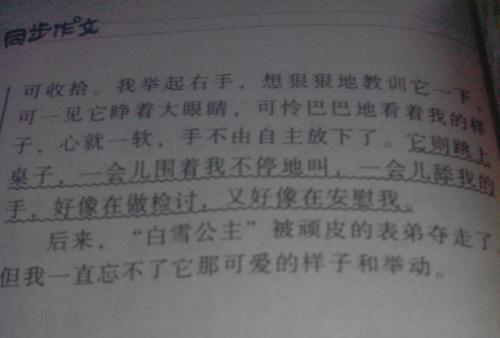 同步作文
可收拾。我举起右手，想狠狠地教训它一下，
可一见它睁着大眼睛，可怜巴巴地看着我的样
子，心就一软，手不由自主放下了。它则跳上
桌子，一会儿围着我不停地叫，一会儿舔我的
手，好像在做检讨，又好像在安慰我。
后来，“白雪公主”被顽皮的表弟夺走了
但我一直忘不了它那可爱的样子和举动。